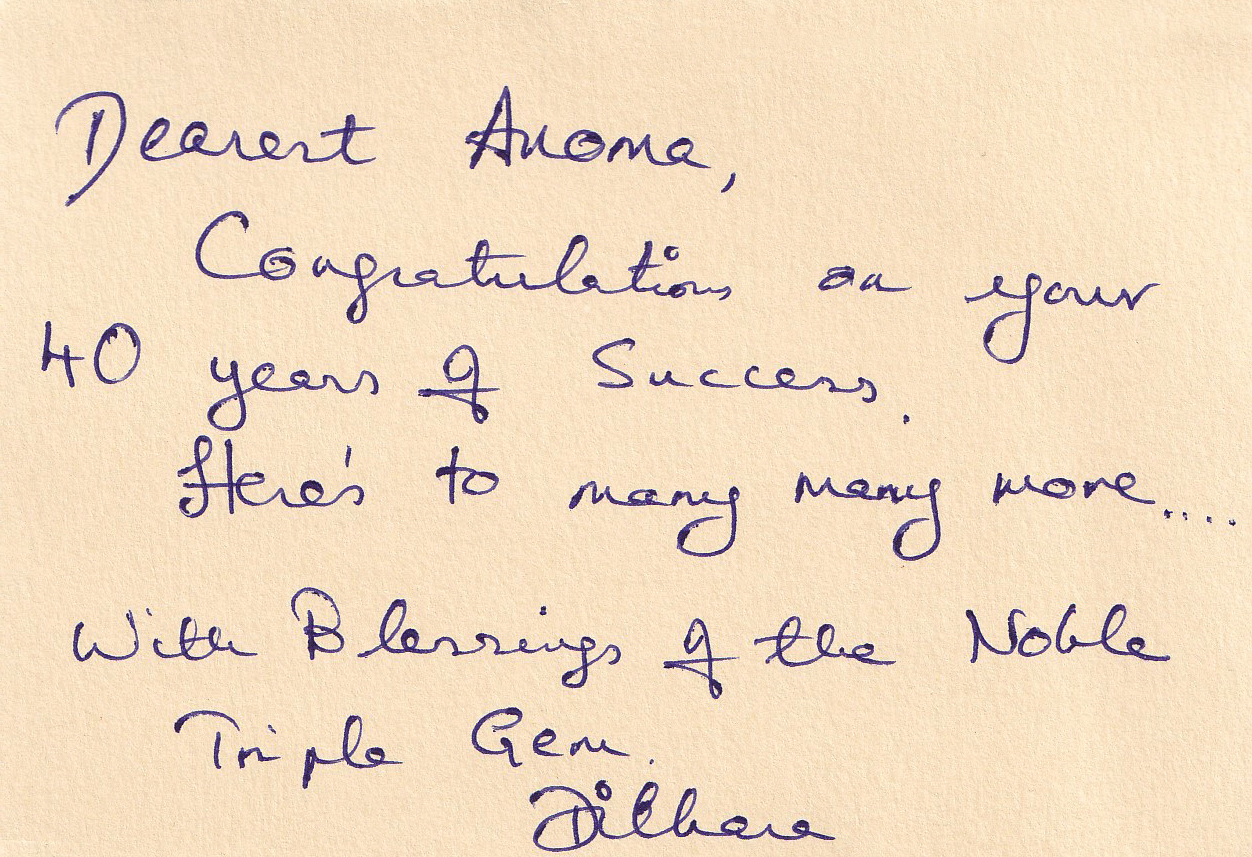 Dearest Anoma,
Congratulations on your
40 years of Success.
Here's to many many more....
With Blessings of the Noble
Triple Gem.
Dilhara